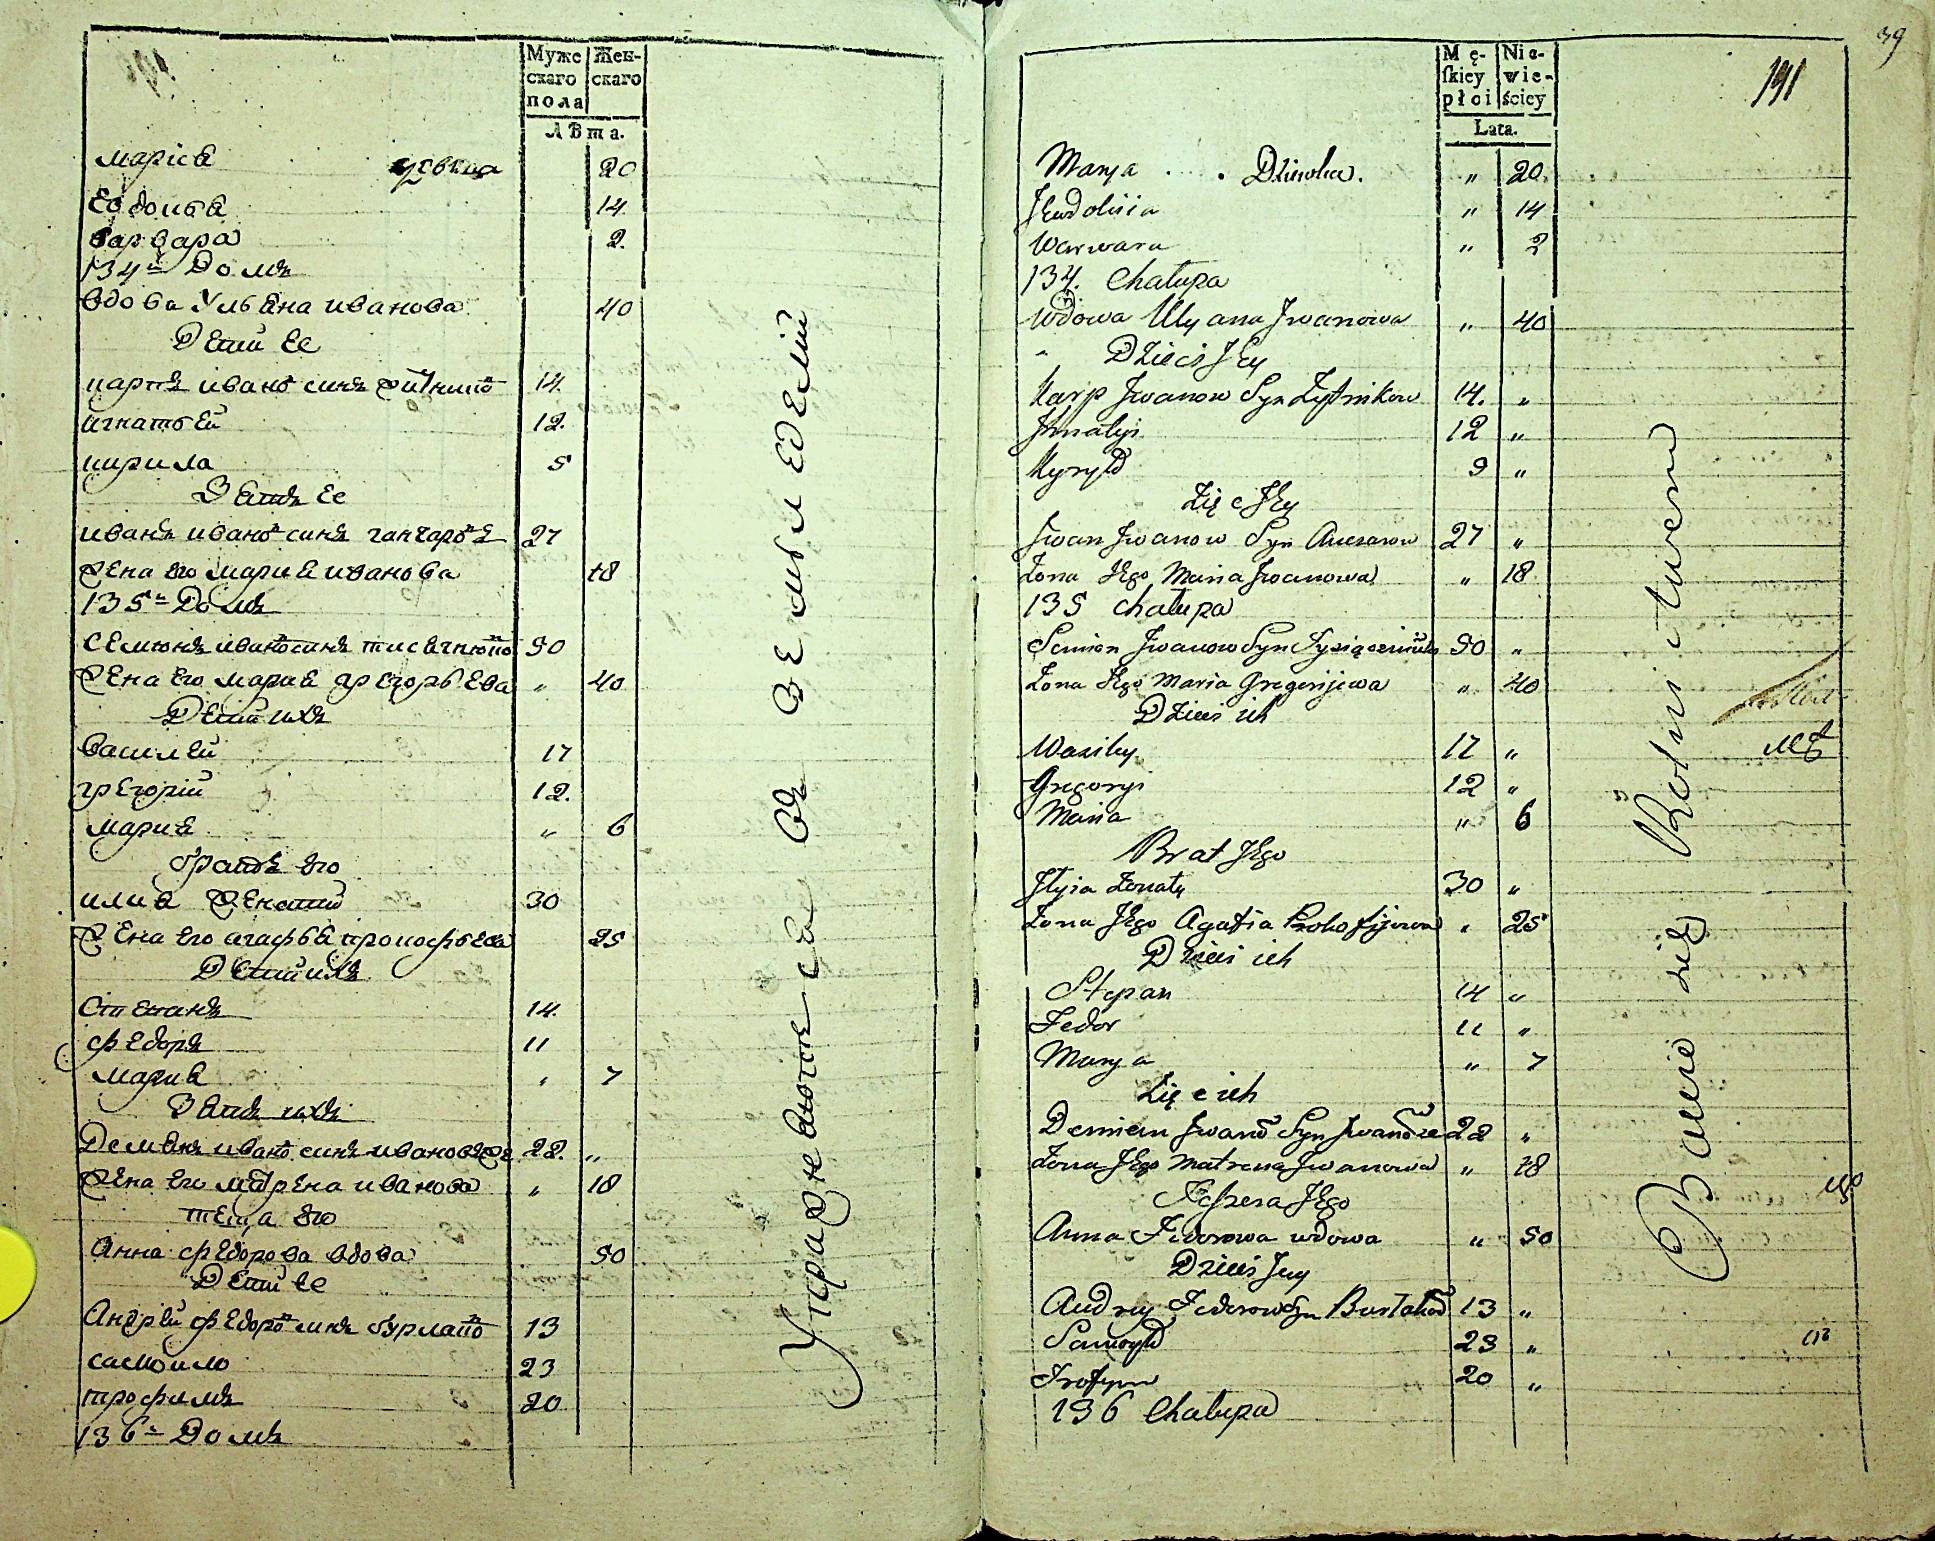 Муже Жен-
скаго скаго
пола
Лѣта.
Марія девка 20
Евдокія 14
Варвара 2.
134й Домъ
вдова Ульяна иванова 40
Дети ее
карпъ иванов синъ житников 14.
игнатьей 12.
кирила 5
Зять ее
иванъ иванов синъ ганчаровъ 27
Жена его мария иванова 18
135й Домъ
Семионъ иванов синъ тисячников 50
Жена его мария григорьева „ 40
Дети ихъ
Василей 17
григорий 12.
мария „ 6
братъ его
илия Женатий 30
Жена его агафья прокофьева 25
Дети ихъ
Степанъ 14.
федоръ 11
мария „ 7
Зять ихъ
Демянъ иванов синъ 22. „
Жена его матрена иванова „ 18
теща его
Анна федорова вдова 50
Дети ее
Андрей федоров синъ бурлаков 13
самойло 23
трофимъ 20
136й Домъ
Упражняются въ земледелии
39
191
Mę- Nie-
skiey wie-
płci ściey
Lata.
Marya . . . Dziewka. „ 20
Jewdokiia „ 14
Warwara „ 2
134. Chałupa
Wdowa Ulyana Jwanowa „ 40
Dzieci Jey
Karp Jwanow Syn Zytnikow 14. „
Jhnatyi 12 „
Kyryło 9 „
Zięc Jey
Jwan Jwanow Syn 27 „
Zona Jego Maria Jwanowa „ 18
135 Chałupa
Semion Jwanow Syn 50 „
Zona Jego Maria Gregorijewa „ 40
Dzieci ich
Wasiley 17 „
Gregoryi 12 „
Maria „ 6
Brat Jego
Jlyia Zonaty 30 „
Zona Jego Agafia Prokofijowa „ 25
Dzieci ich
Stepan 14 „
Fedor 11 „
Marya „ 7
Zięc ich
Demian Jwanow Syn 22 „
Zona Jego Matrena Jwanowa „ 18
Anna Fedorowa wdowa „ 50
Dzieci Jey
Andrey Fedorow Syn Burlakow 13 „
Samoyło 23 „
Trofym 20 „
136 Chałupa
Bawie się Rolnictwem